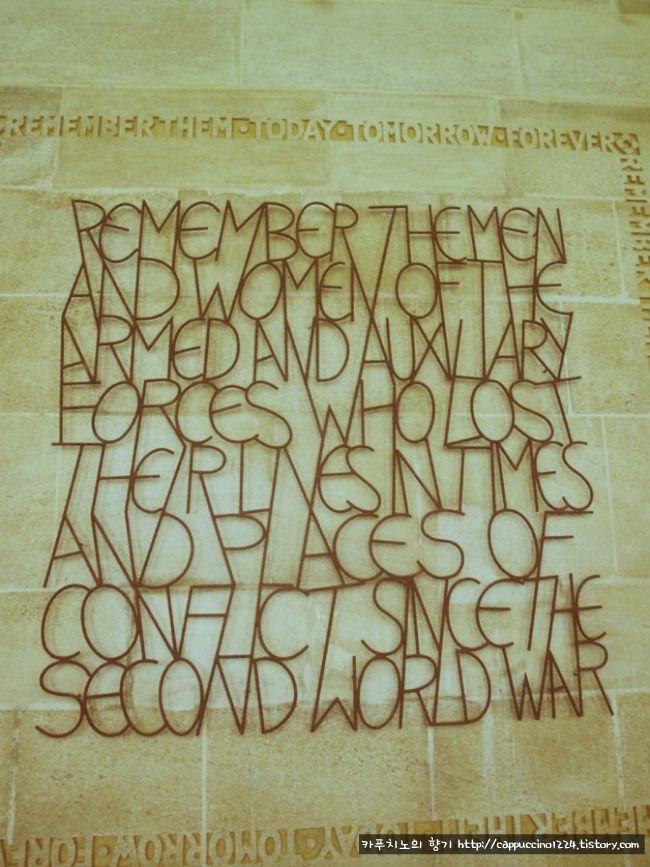 REMEMBER THEM · TODAY · TOMORROW · FOREVER
REMEMBER
REMEMBER THE MEN
AND WOMEN OF THE
ARMED AND AUXILIARY
FORCES WHO LOST
THEIR LIVES IN TIMES
AND PLACES OF
CONFLICT SINCE THE
SECOND WORLD WAR
TOMORROW
카푸치노의 향기 http://cappuccino1224.tistory.com